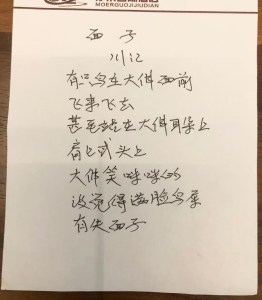 MOERGUOJIJIUDIAN
面子
川江
有只鸟在大佛面前
飞来飞去
甚至站在大佛耳朵上
肩上或头上
大佛笑咪咪的
没觉得满脸鸟屎
有失面子